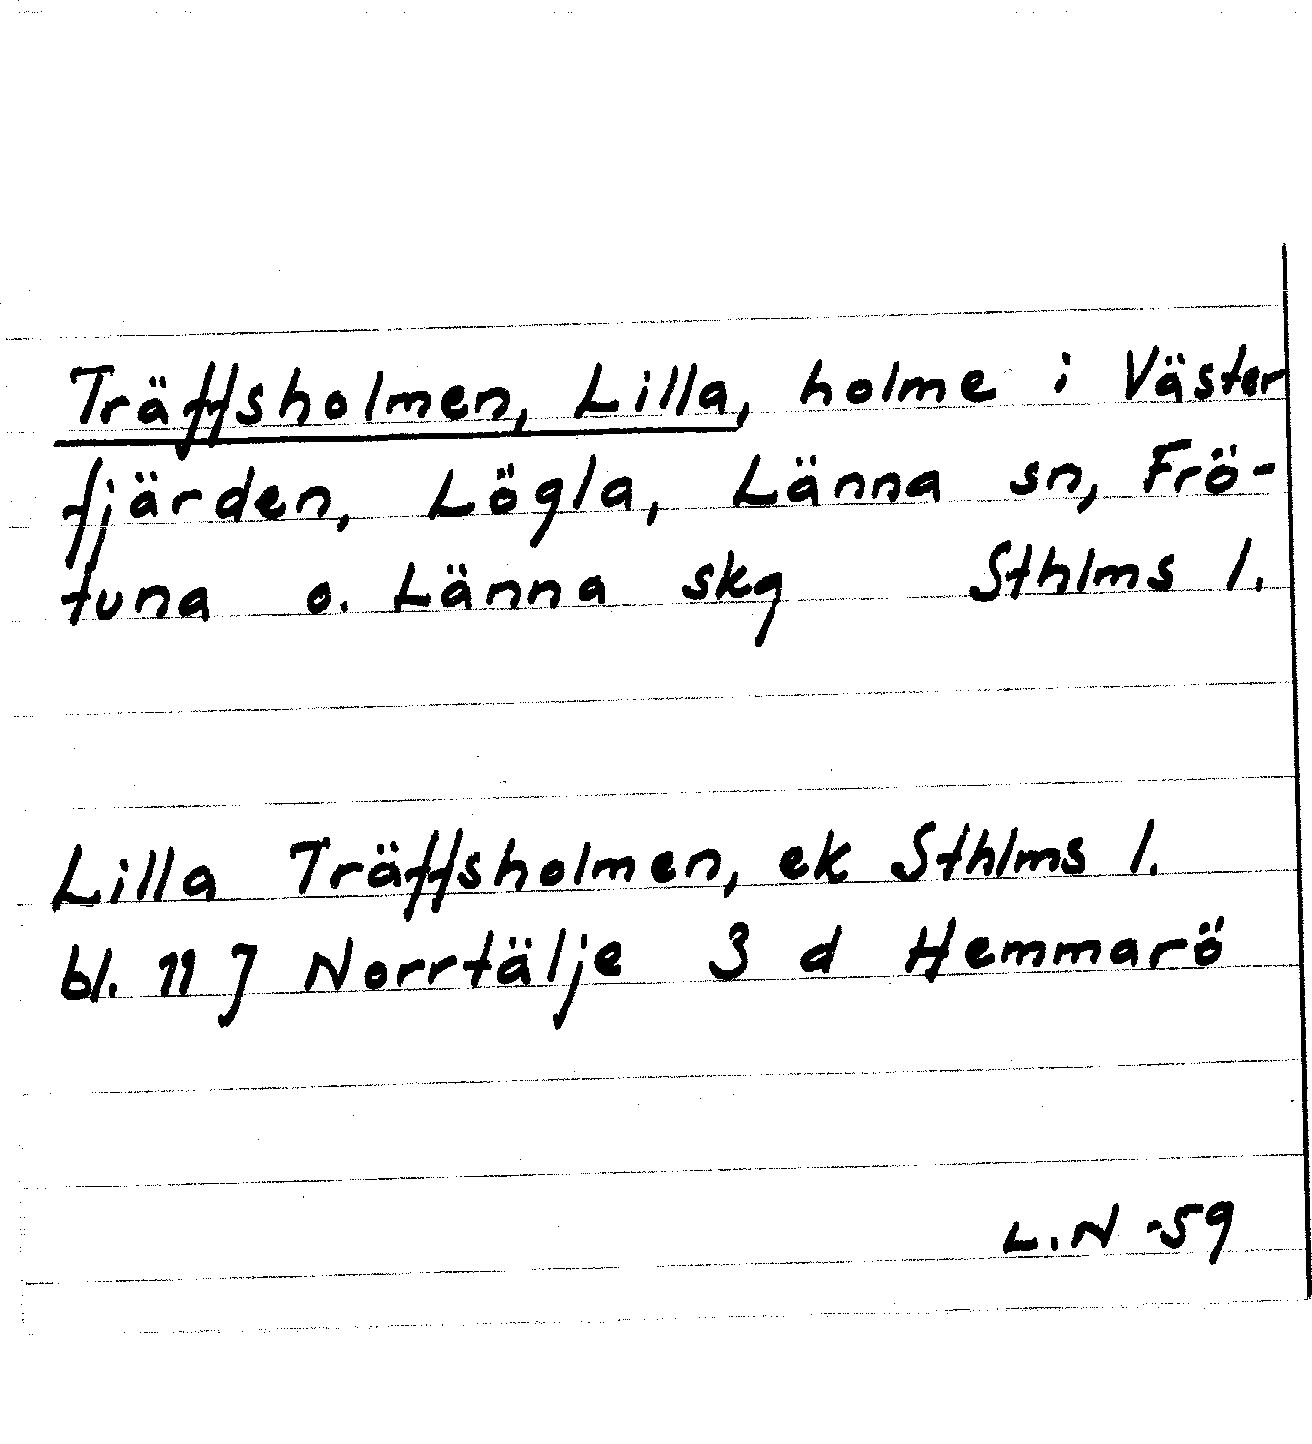 Träffsholmen, Lilla, holme i Väster
fjärden, Lögla, Länna sn, Frö-
tuna o. Länna skg Sthlms l.
Lilla Träffsholmen, ek Sthlms l.
bl. 11 J Norrtälje 3 d Hemmarö
L.N -59